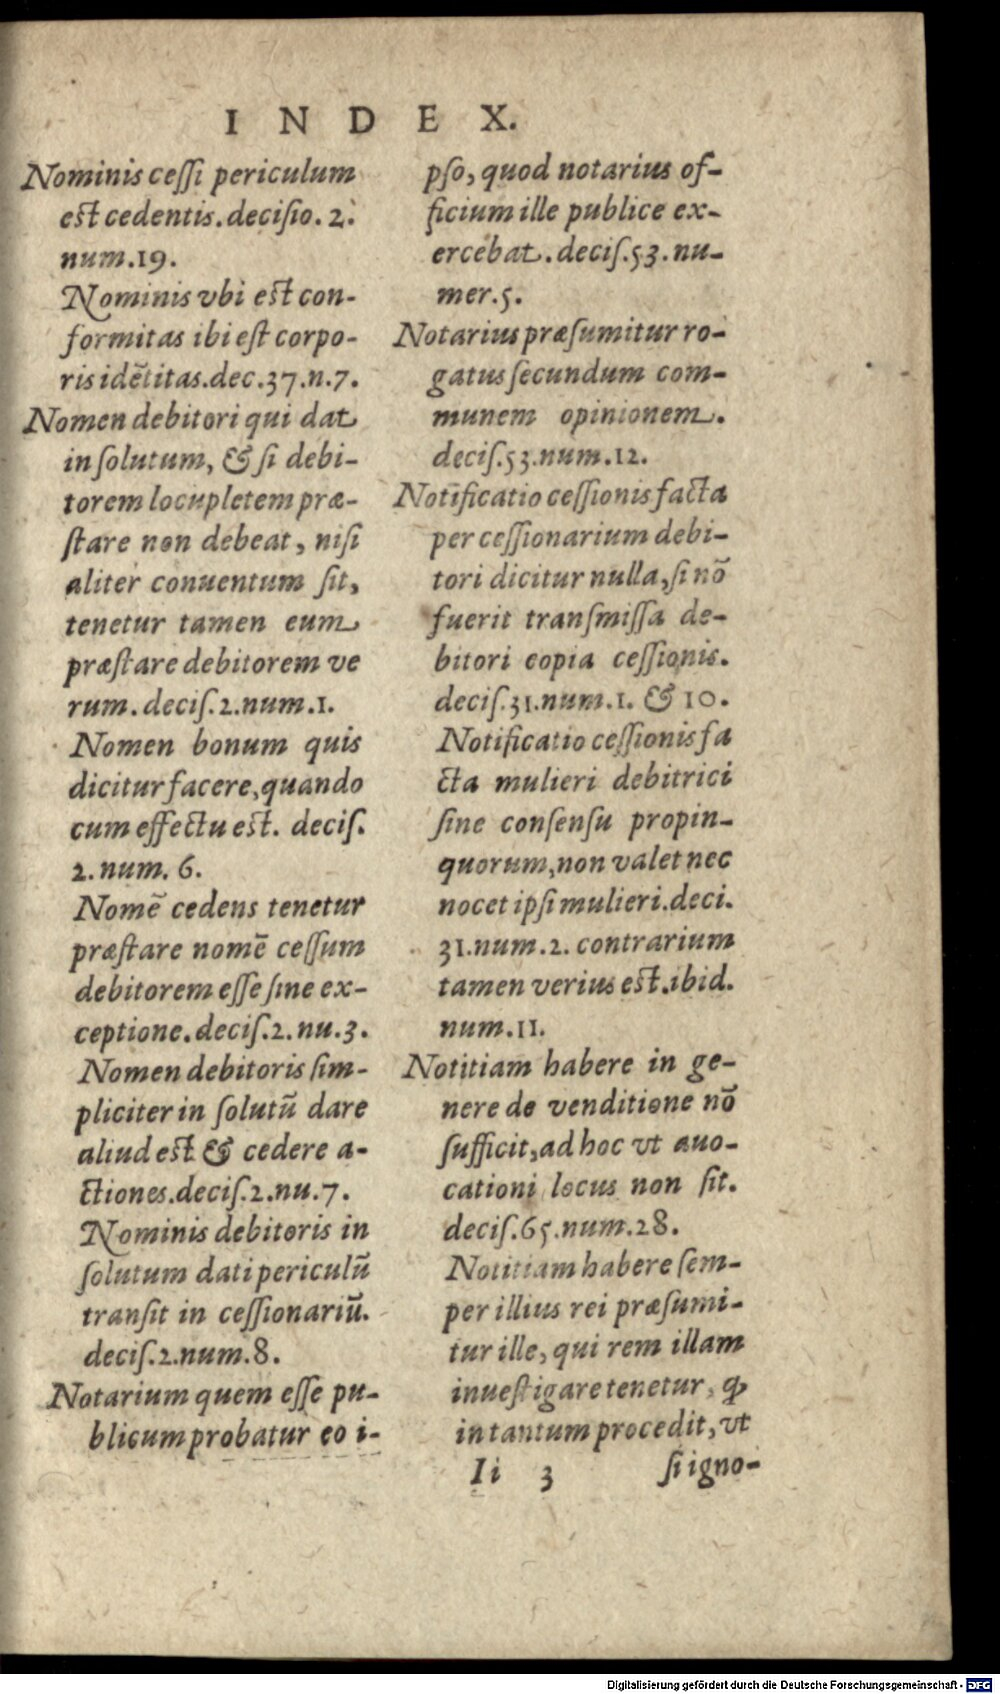 INDEX.
Nominis ceſſi periculum
est cedentis. deciſio. 2.
num. 19.
Nominis vbi est con-
formitas ibi eſt corpo-
ris idẽtitas. dec. 37. n. 7.
Nomen debitori qui dat
in ſolutum, & ſi debi-
torem locupletem præ-
ſtare non debeat, niſi
aliter conuentum ſit,
tenetur tamen eum
præſtare debitorem ve
rum. deciſ. 2. num. 1.
Nomen bonum quis
dicitur facere, quando
cum effectu est. deciſ.
2. num. 6.
Nomẽ cedens tenetur
præſtare nomẽ ceſſum
debitorem eſſe ſine ex-
ceptione. deciſ. 2. nu. 3.
Nomen debitoris ſim-
pliciter in ſolutũ dare
aliud est & cedere a-
ctiones. deciſ. 2. nu. 7.
Nominis debitoris in
ſolutum dati periculũ
tranſit in ceſſionariũ.
deciſ. 2. num. 8.
Notarium quem eſſe pu-
blicum probatur eo i-
pſo, quod notarius of-
ficium ille publice ex-
ercebat. deciſ. 53. nu-
mer. 5.
Notarius præſumitur ro-
gatus ſecundum com-
munem opinionem.
deciſ. 53. num. 12.
Notificatio ceſſionis facta
per ceſſionarium debi-
tori dicitur nulla, ſi nõ
fuerit tranſmiſſa de-
bitori copia ceſſionis.
deciſ. 31. num. 1. & 10.
Notificatio ceſſionis fa
cta mulieri debitrici
ſine conſenſu propin-
quorum, non valet nec
nocet ipſi mulieri. deci.
31. num. 2. contrarium
tamen verius est. ibid.
num. 11.
Notitiam habere in ge-
nere de venditione nõ
ſufficit, ad hoc vt auo-
cationi locus non ſit.
deciſ. 65. num. 28.
Notitiam habere ſem-
per illius rei præſumi-
tur ille, qui rem illam
inueſtigare tenetur, ꝙ
in tantum procedit, vt
Ii 3 ſi igno-
Digitalisierung gefördert durch die Deutsche Forschungsgemeinschaft - DFG